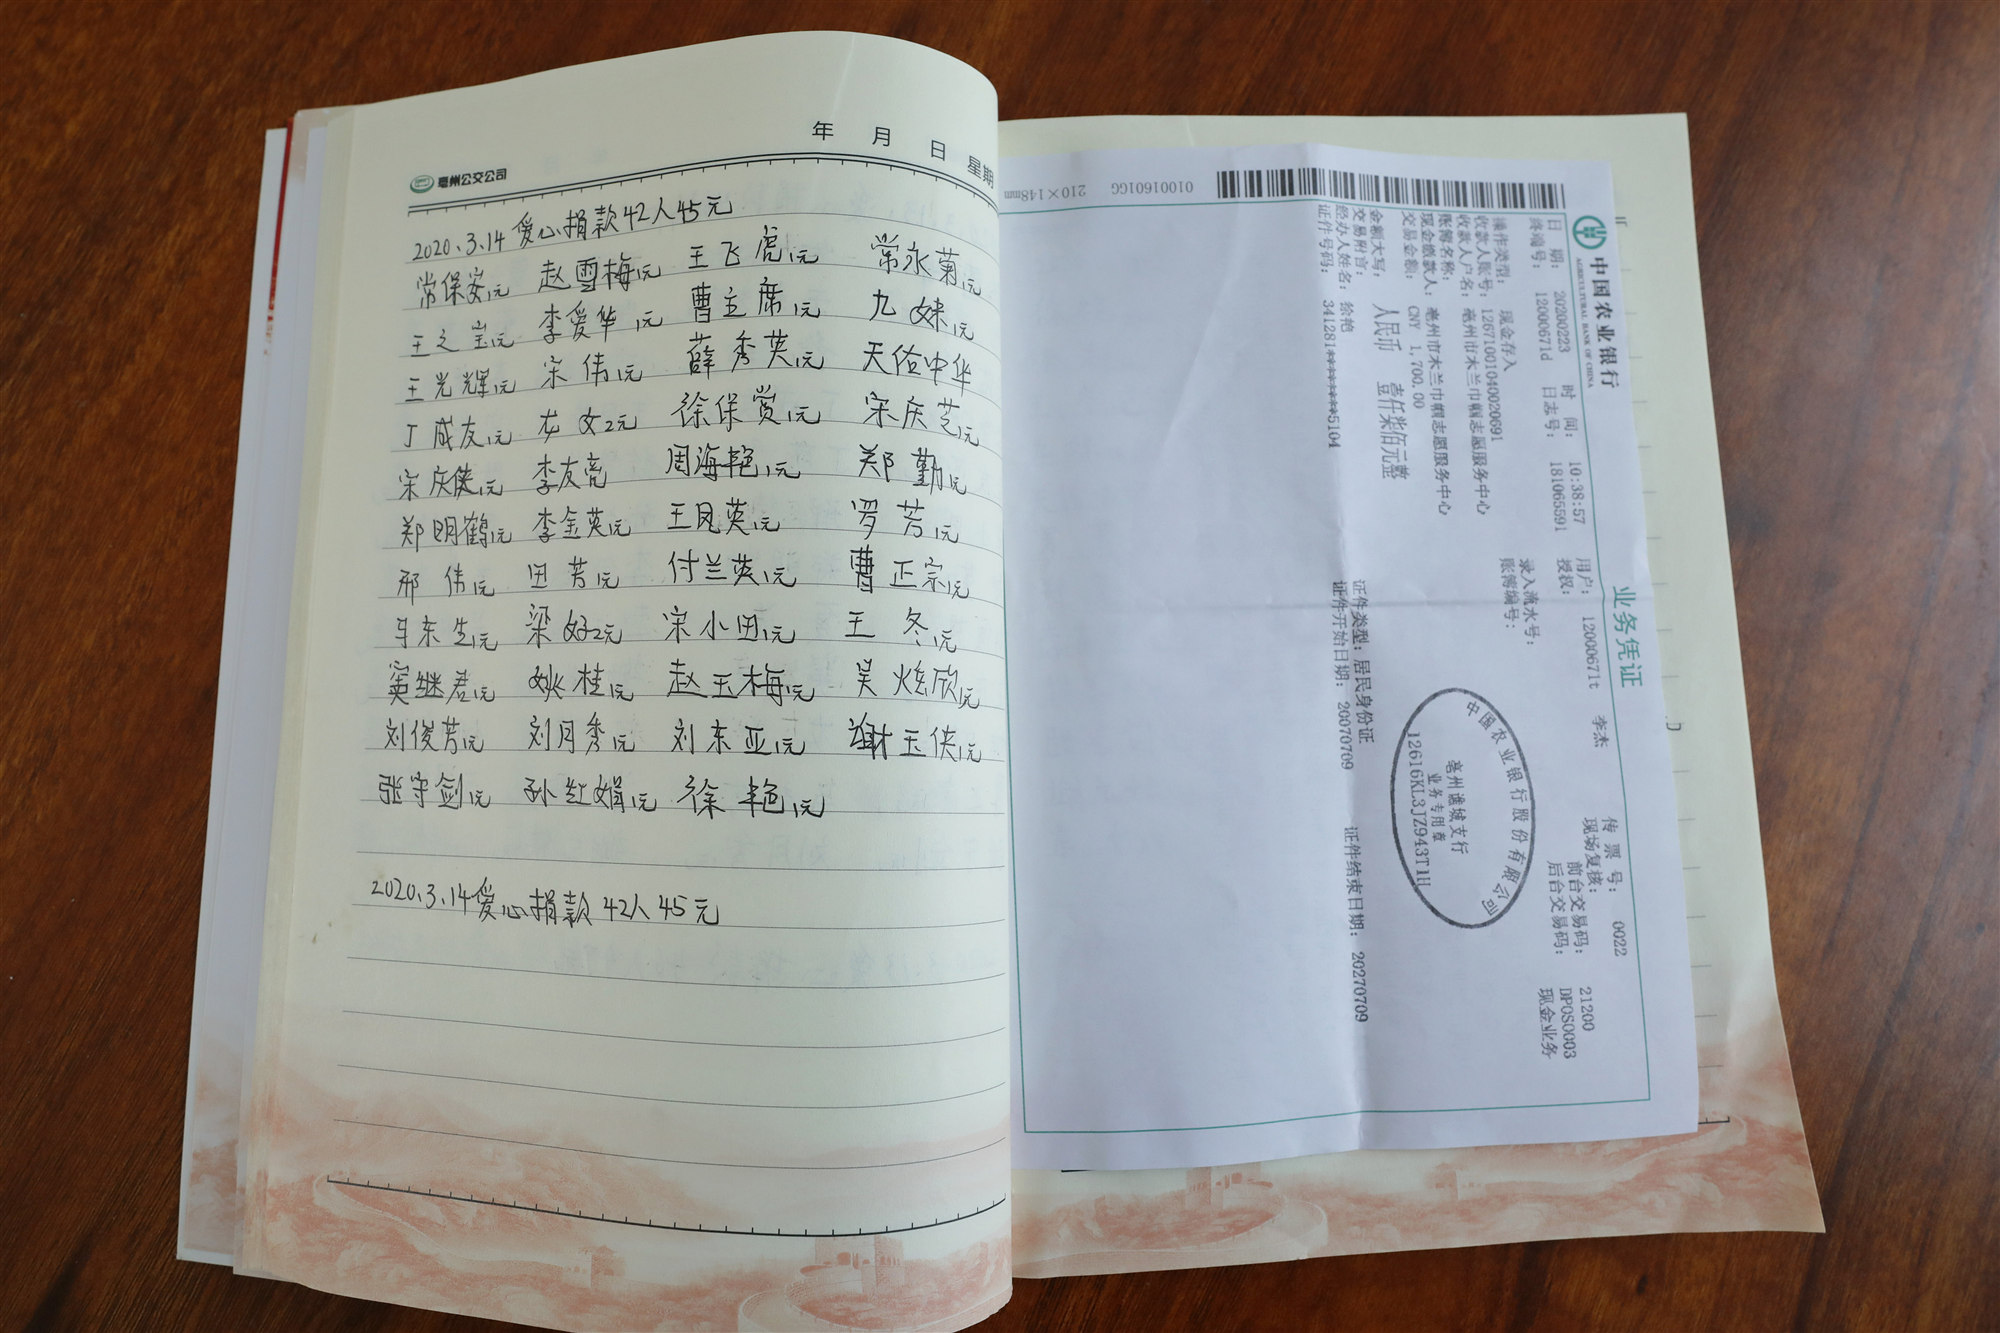 亳州公交公司
年 月 日 星期
2020.3.14爱心捐款42人45元
常保安1元 赵雪梅1元 王飞虎1元 常永菊1元
王之宝1元 李爱华1元 曹主席1元 九妹1元
王光辉1元 宋伟1元 薛秀英1元 天佑中华
丁成友1元 女2元 徐保赏1元 宋庆芝1元
宋庆侠1元 李友亮 周海艳1元 郑勤1元
郑明鹤1元 李金英1元 王凤英1元 罗芳1元
邢伟1元 田芳1元 付兰英1元 曹正宗1元
马东生1元 梁好2元 宋小田1元 王冬1元
窦继君1元 姚桂1元 赵玉梅1元 吴炫欣1元
刘俊芳1元 刘月秀1元 刘东亚1元 谢玉侠1元
张守剑1元 孙红娟1元 徐艳1元
2020.3.14爱心捐款42人45元
中国农业银行
AGRICULTURAL BANK OF CHINA
业务凭证
日 期: 20200223 时 间: 10:38:57 用户: 1200067lt 李杰 传 票 号: 0022
终端号: 1200067ld 日志号: 181065591 授权: 现场复核:
前台交易码: 21200
后台交易码: DP0S0003
现金业务
操作类型: 现金存入 录入流水号:
收款人账号: 12671001040020691 账簿编号:
收款人户名: 亳州市木兰巾帼志愿服务中心
账簿名称:
现金缴款人: 亳州市木兰巾帼志愿服务中心
交易金额: CNY 1,700.00
金额大写: 人民币 壹仟柒佰元整
交易附言:
经办人姓名: 徐艳 证件类型: 居民身份证
证件号码: 341281********5104 证件开始日期: 20070709 证件结束日期: 20270709
中国农业银行股份有限公司
亳州谯城支行
业务专用章
12616KL3JZ943T1U
010001601GG 210×148mm